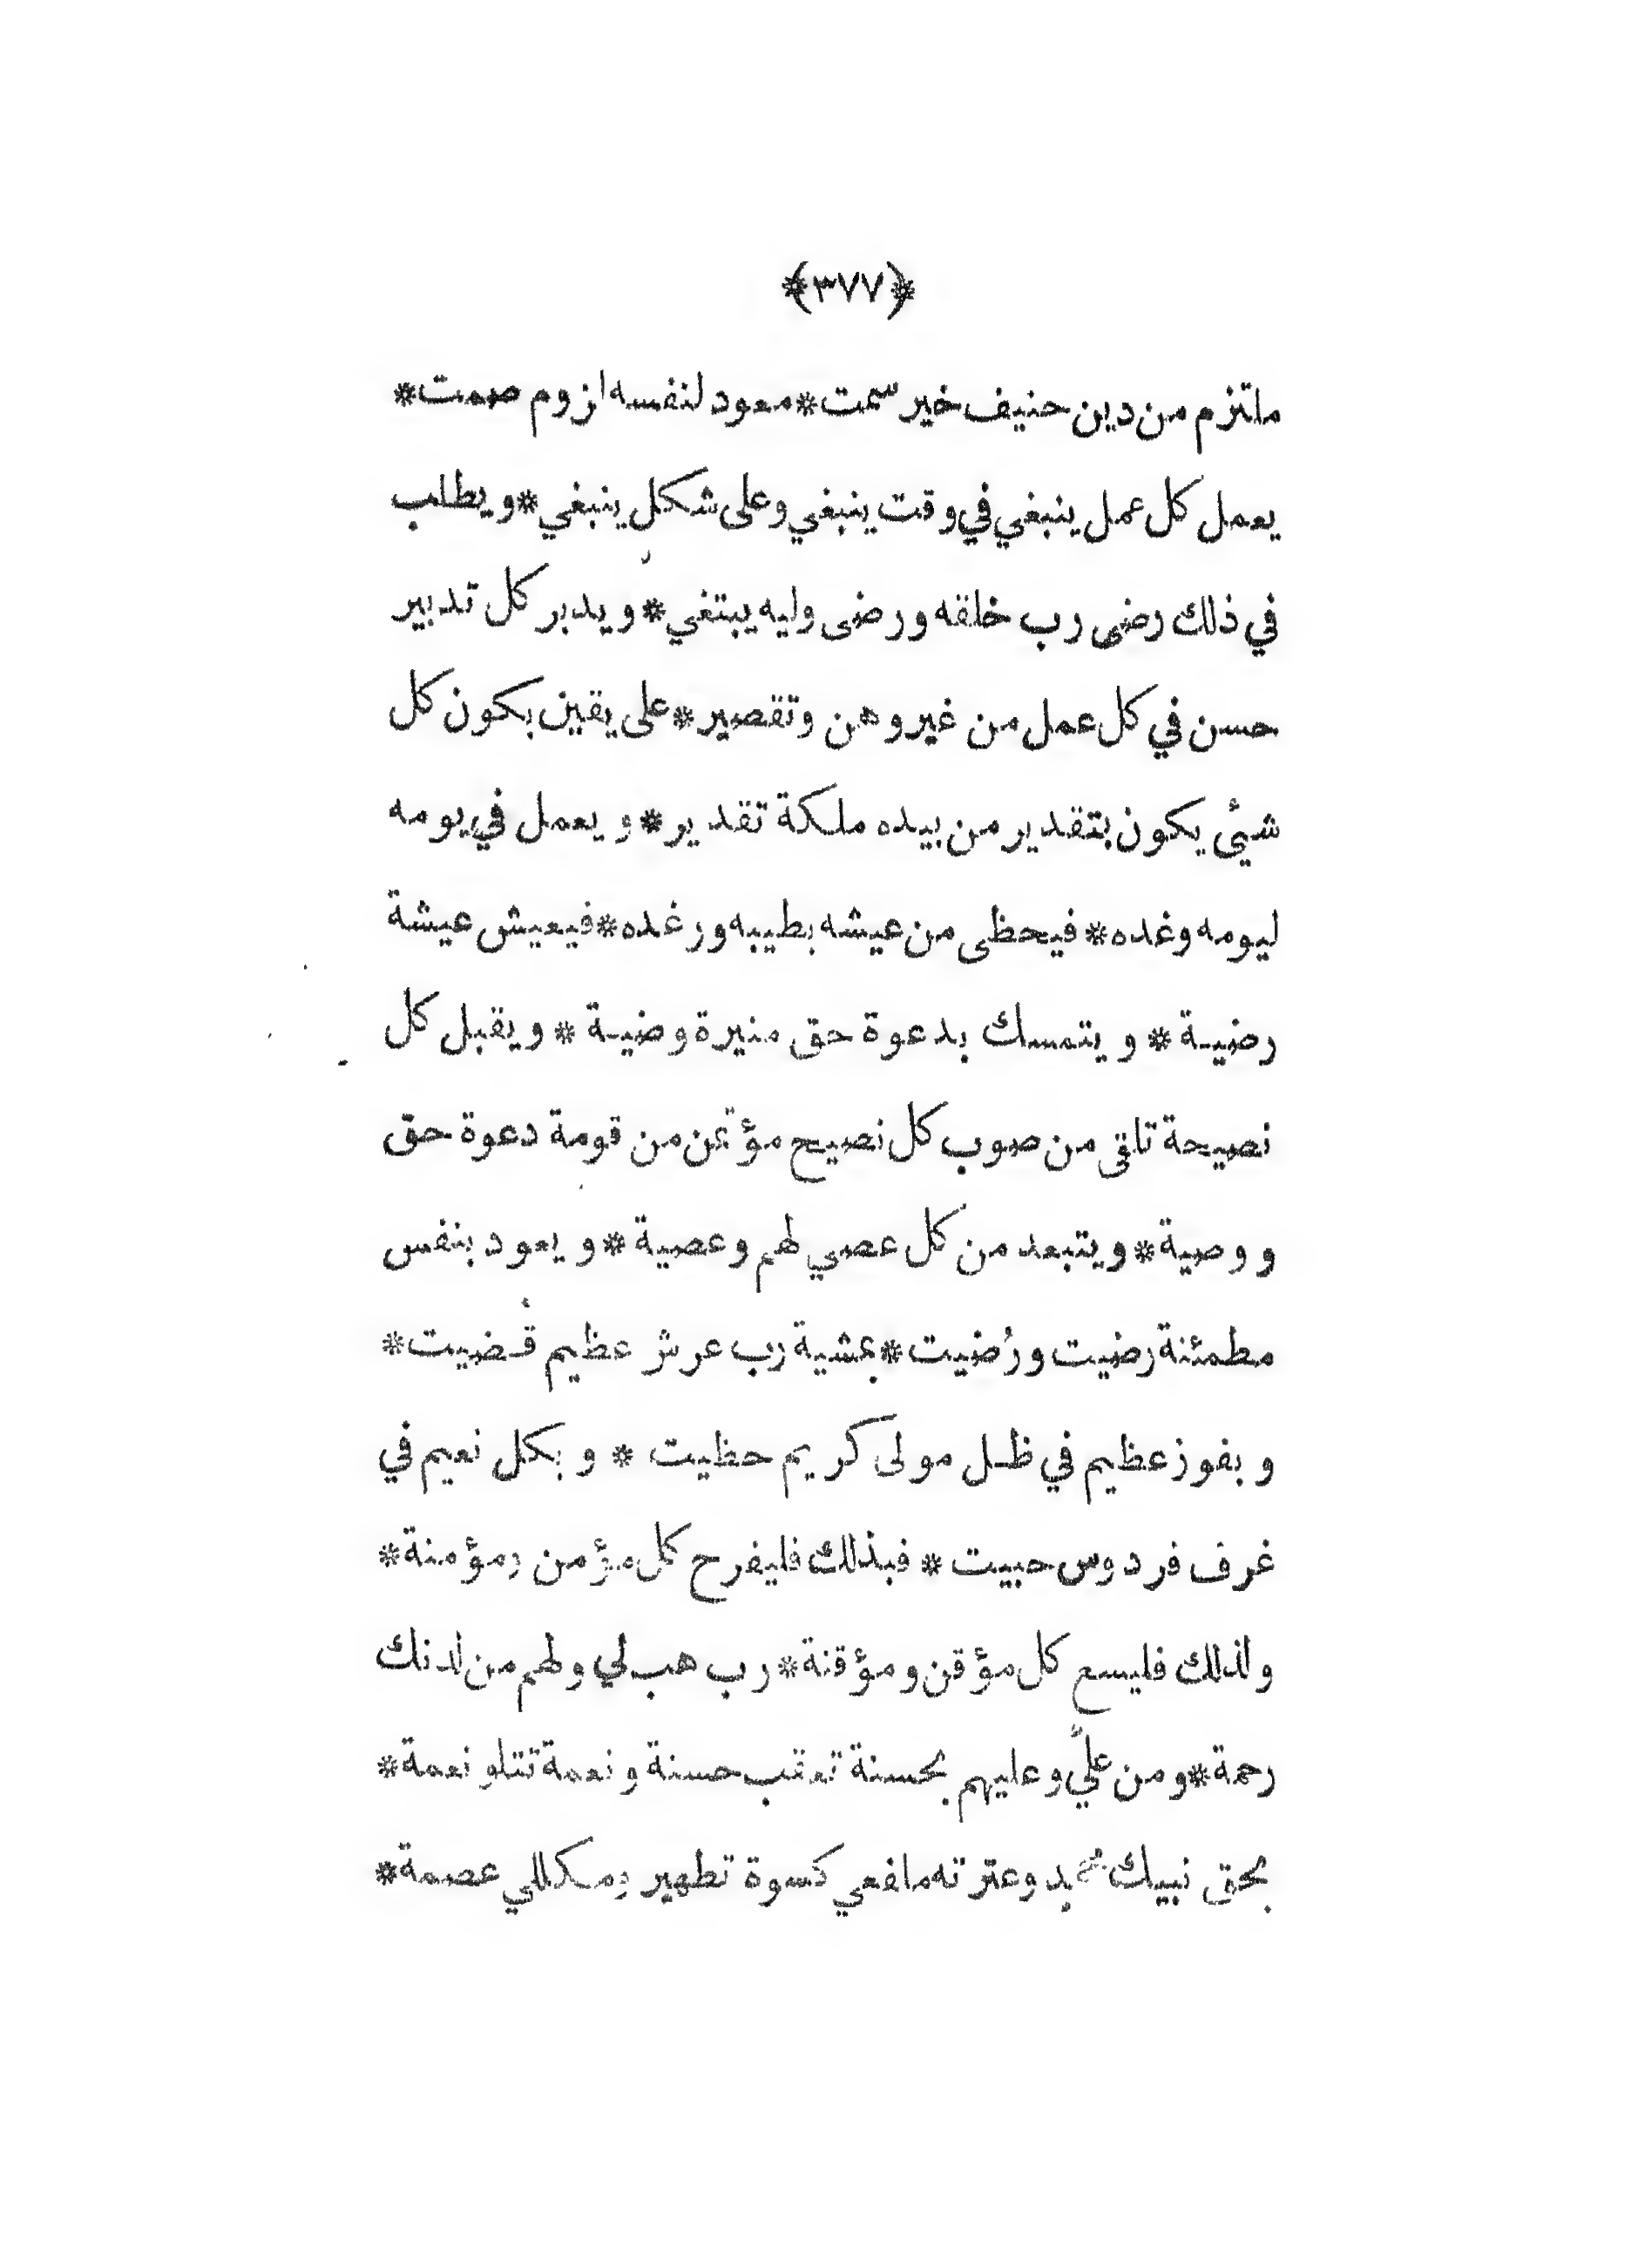 ﴿٣٧٧﴾
ملتزم من دين حنيف خير سمت * معود لنفسه لزوم صمت *
يعمل كل عمل ينبغي في وقت ينبغي وعلى شكل ينبغي * ويطلب
في ذلك رضى رب خلقه ورضى وليه يبتغي * ويدبر كل تدبير
حسن في كل عمل من غير وهن وتقصير * على يقين بكون كل
شيئ يكون بتقدير من بيده ملكة تقدير * ويعمل في يومه
ليومه وغده * فيحظى من عيشه بطيبه ورغده * فيعيش عيشة
رضية * ويتمسك بدعوة حق منيرة وضية * ويقبل كل
نصيحة تلقى من صوب كل نصيح مؤتمن من قومة دعوة حق
ووصية * ويتبعد من كل عصي لهم وعصية * ويعود بنفس
مطمئنة رضيت ورُضيت * بمشية رب عرش عظيم قُضيت *
وبفوز عظيم في ظل مولى كريم حظيت * وبكل نعيم في
غرف فردوس حبيت * فبذلك فليفرح كل مؤمن ومؤمنة *
ولذلك فليسع كل مؤقن ومؤقنة * رب هب لي ولهم من لدنك
رحمة * ومن عليَّ وعليهم بحسنة تعقب حسنة ونعمة تتلو نعمة *
بحق نبيك محمد وعترته ملفعي كسوة تطهير ومكللي عصمة *